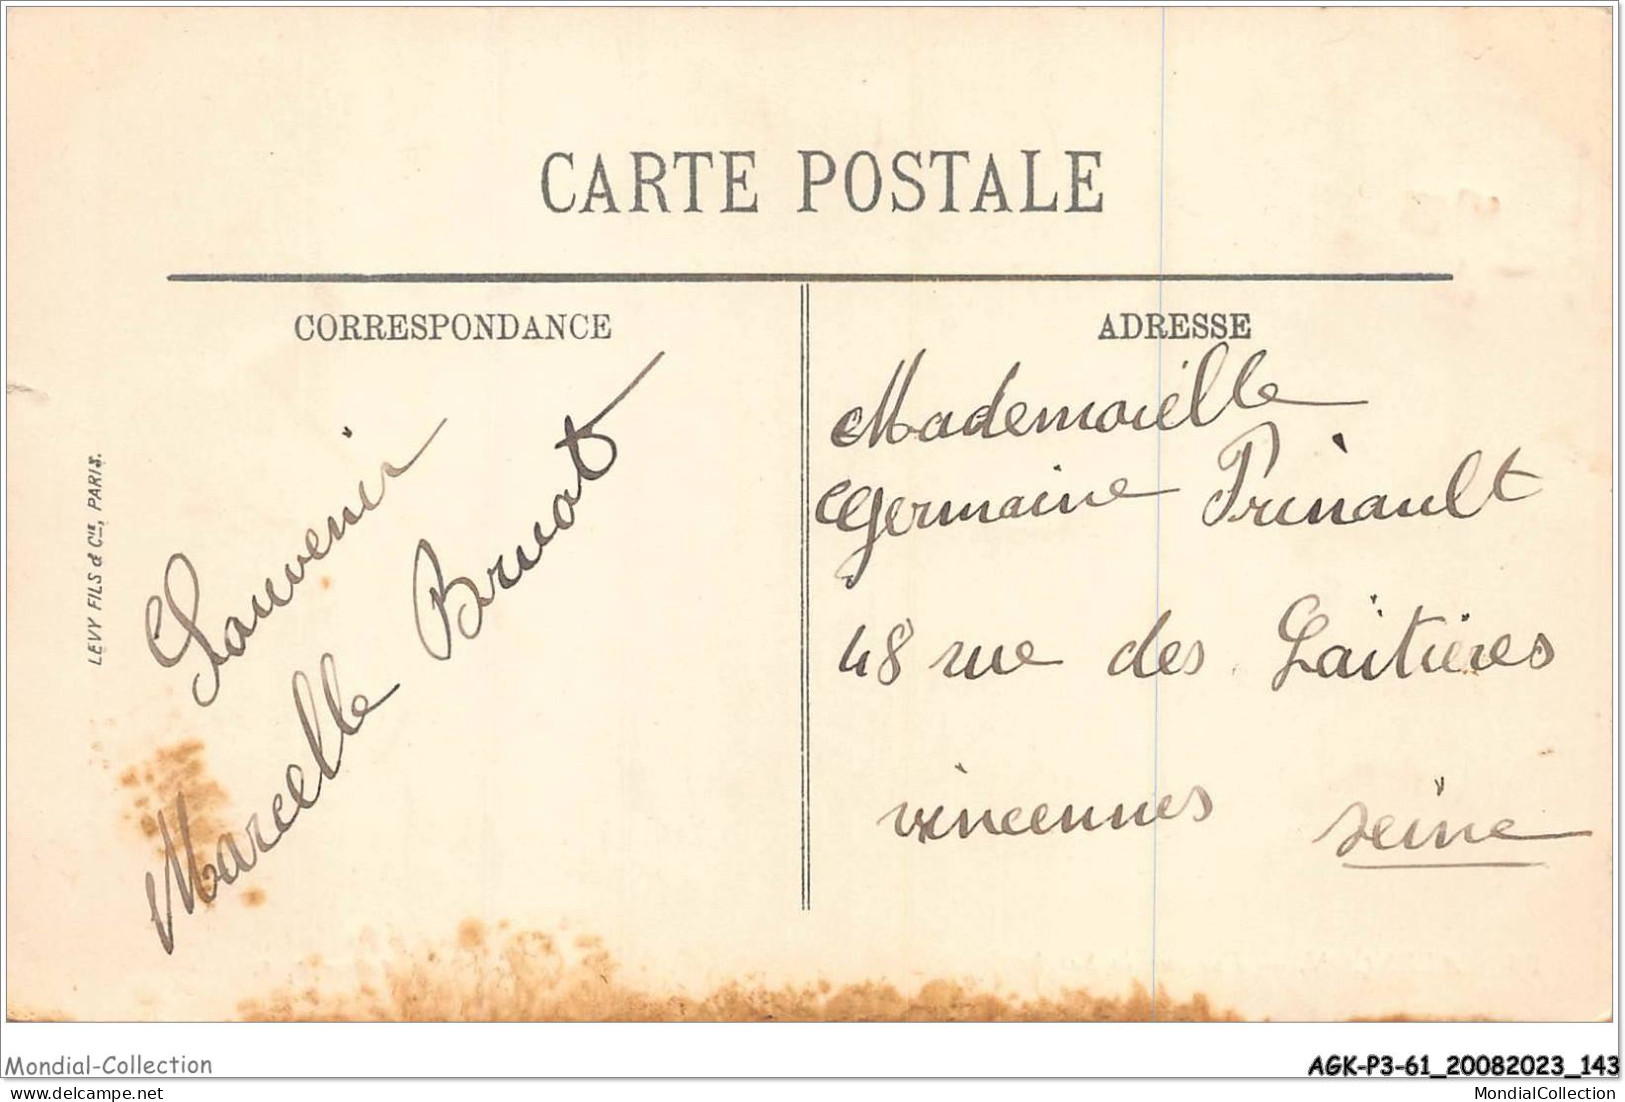 CARTE POSTALE
CORRESPONDANCE
ADRESSE
LEVY FILS & Cie, PARIS.
Souvenir
Marcelle Bruat
Mademoiselle
Germaine Prinault
48 rue des Laitières
vincennes seine
Mondial-Collection
AGK-P3-61_20082023_143
MondialCollection